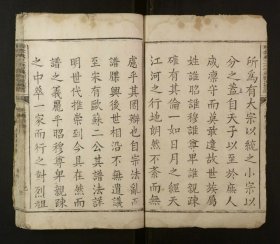 所爲有大宗以統之小宗以
分之蓋自天子以至於庶人
咸凛守而莫敢違故世族屬
姓誰昭誰穆誰尊卑誰親誰疎
確有其倫一如日月之經天
江河之行地朗然不紊而無
處乎其困辯也自宗法亂而
譜牒興後世相沿不無遺議
至宋有歐蘇二公其譜法詳
明世代推崇到今具在然而
譜之義龎乎昭穆尊卑親疎
之中萃一家而行之對烈祖